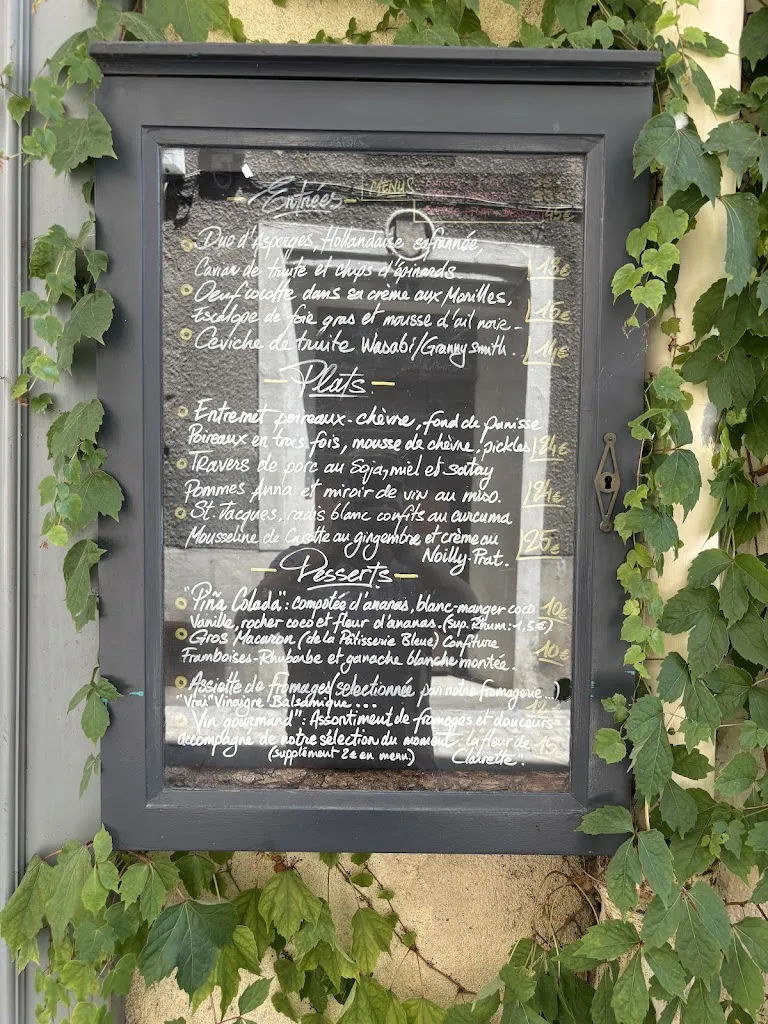 Entrées
MENUS
45€
Duo d'Asperges, Hollandaise safrannée,
Caviar de truite et chips d'épinards 13€
Oeuf cocotte dans sa crème aux Morilles,
Escalope de foie gras et mousse d'ail noir. 16€
Céviche de truite Wasabi/Granny smith. 14€
Plats
Entremet poireaux-chèvre, fond de panisse
Poireaux en trois fois, mousse de chèvre, pickles 24€
Travers de porc au Soja, miel et satay
Pommes Anna et miroir de vin au miso. 24€
St. Jacques, radis blanc confits au curcuma
Mousseline de Carotte au gingembre et crème au
Noilly-Prat. 25€
Desserts
"Piña Colada": compotée d'ananas, blanc-manger coco 10€
Vanille, rocher coco et fleur d'ananas. (sup. Rhum: 1,5€)
Gros Macaron (de la Pâtisserie Bleue) Confiture
Framboises-Rhubarbe et ganache blanche montée. 10€
Assiette de fromages selectionnée par notre fromagerie...
"Vrai" Vinaigre Balsamique...
"Vin gourmand": Assortiment de fromages et douceurs
accompagné de notre sélection du moment: la fleur de 15
(supplément 2€ en menu) Clairette.